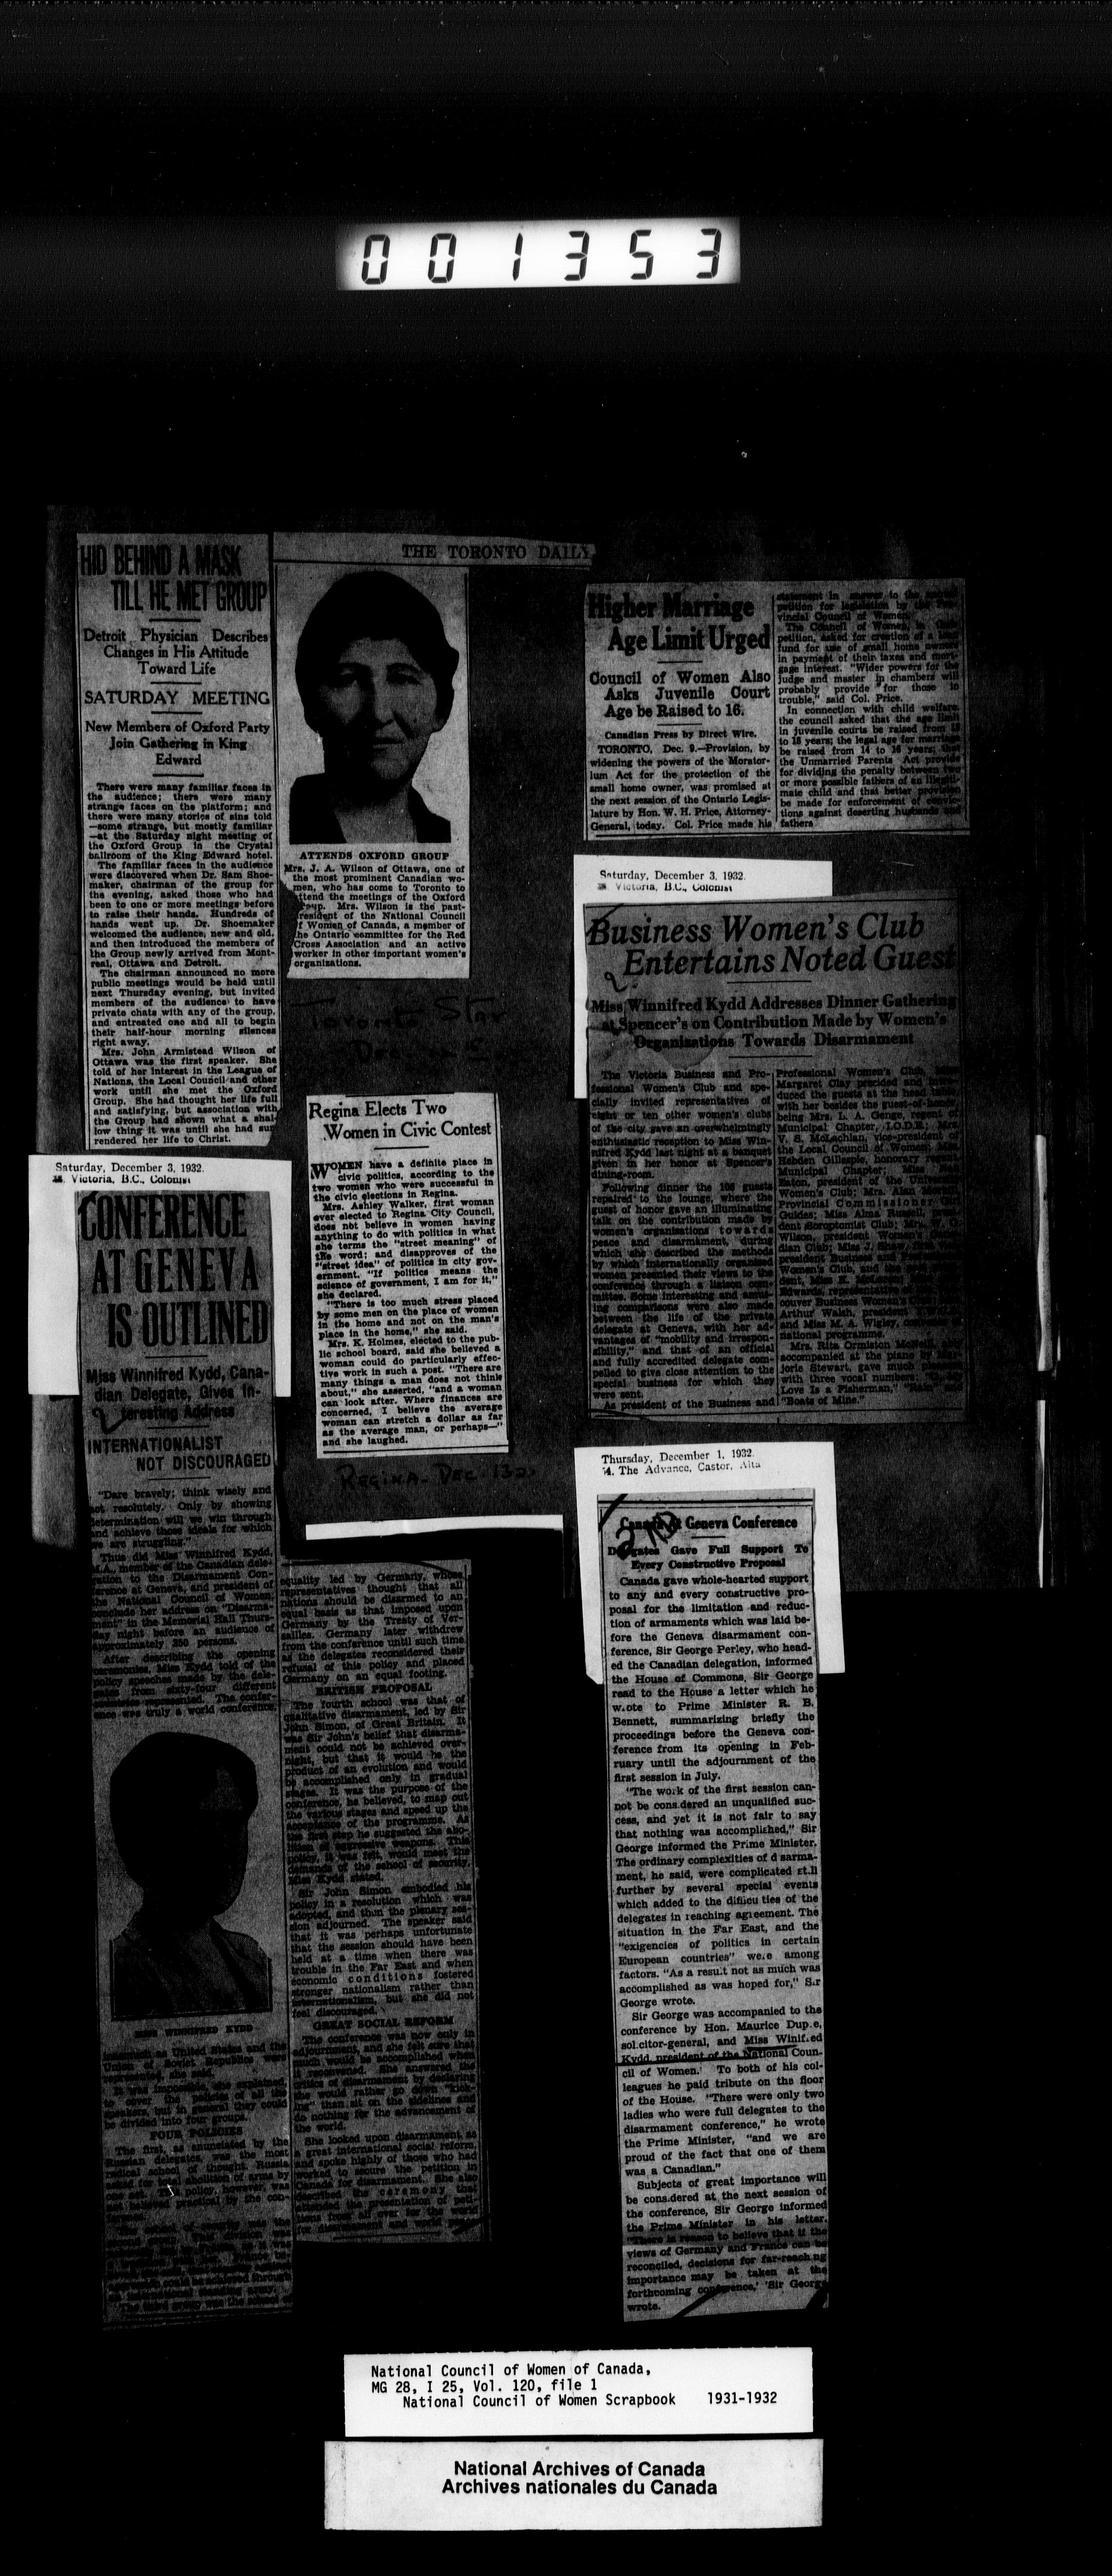 001353
HID BEHIND A MASK
TILL HE MET GROUP
Detroit Physician Describes
Changes in His Attitude
Toward Life
SATURDAY MEETING
New Members of Oxford Party
Join Gathering in King
Edward
There were many familiar faces in
the audience; there were many
strange faces on the platform; and
there were many stories of sins told
—some strange, but mostly familiar
—at the Saturday night meeting of
the Oxford Group in the Crystal
ballroom of the King Edward hotel.
The familiar faces in the audience
were discovered when Dr. Sam Shoe-
maker, chairman of the group for
the evening, asked those who had
been to one or more meetings before
to raise their hands. Hundreds of
hands went up. Dr. Shoemaker
welcomed the audience, new and old,
and then introduced the members of
the Group newly arrived from Mont-
real, Ottawa and Detroit.
The chairman announced no more
public meetings would be held until
next Thursday evening, but invited
members of the audience to have
private chats with any of the group,
and entreated one and all to begin
their half-hour morning silences
right away.
Mrs. John Armistead Wilson of
Ottawa was the first speaker. She
told of her interest in the League of
Nations, the Local Council and other
work until she met the Oxford
Group. She had thought her life full
and satisfying, but association with
the Group had shown what a shal-
low thing it was until she had sur
rendered her life to Christ.
THE TORONTO DAILY
ATTENDS OXFORD GROUP
Mrs. J. A. Wilson of Ottawa, one of
the most prominent Canadian wo-
men, who has come to Toronto to
attend the meetings of the Oxford
Group. Mrs. Wilson is the past-
president of the National Council
of Women of Canada, a member of
the Ontario committee for the Red
Cross Association and an active
worker in other important women's
organizations.
Toronto Star
Dec
Regina Elects Two
Women in Civic Contest
WOMEN have a definite place in
civic politics, according to the
two women who were successful in
the civic elections in Regina.
Mrs. Ashley Walker, first woman
ever elected to Regina City Council,
does not believe in women having
anything to do with politics in what
she terms the "street meaning" of
the word; and disapproves of the
"street idea" of politics in city gov-
ernment. "If politics means the
science of government, I am for it,"
she declared.
"There is too much stress placed
by some men on the place of women
in the home and not on the man's
place in the home," she said.
Mrs. K. Holmes, elected to the pub-
lic school board, said she believed a
woman could do particularly effec-
tive work in such a post. "There are
many things a man does not think
about," she asserted, "and a woman
can look after. Where finances are
concerned, I believe the average
woman can stretch a dollar as far
as the average man, or perhaps—"
and she laughed.
REGINA. DEC.
Higher Marriage
Age Limit Urged
Council of Women Also
Asks Juvenile Court
Age be Raised to 16.
Canadian Press by Direct Wire.
TORONTO, Dec. 9.—Provision, by
widening the powers of the Morator-
ium Act for the protection of the
small home owner, was promised at
the next session of the Ontario Legis-
lature by Hon. W. H. Price, Attorney-
General, today. Col. Price made his
statement in answer to the
petition for legislation by the
vincial Council of Women.
The Council of Women, in
petition, asked for creation of a loan
fund for use of small home owners
in payment of their taxes and mort-
gage interest. "Wider powers for the
judge and master in chambers will
probably provide for those in
trouble," said Col. Price.
In connection with child welfare,
the council asked that the age limit
in juvenile courts be raised from
to 18 years; the legal age for marriage
be raised from 14 to 16 years; that
the Unmarried Parents Act provide
for dividing the penalty between two
or more possible fathers of an illegiti-
mate child and that better provision
be made for enforcement of convic-
tions against deserting husbands and
fathers
Saturday, December 3, 1932.
Victoria, B.C., Colonist
Business Women's Club
Entertains Noted Guest
Miss Winnifred Kydd Addresses Dinner Gathering
at Spencer's on Contribution Made by Women's
Organizations Towards Disarmament
The Victoria Business and Pro-
fessional Women's Club and spe-
cially invited representatives of
eight or ten other women's clubs
of the city gave an overwhelmingly
enthusiastic reception to Miss Win-
nifred Kydd last night at a banquet
given in her honor at Spencer's
dining-room.
Following dinner the 100 guests
repaired to the lounge, where the
guest of honor gave an illuminating
talk on the contribution made by
women's organizations towards
peace and disarmament, during
which she described the methods
by which internationally organized
women presented their views to the
conference through a liaison com-
mittee. Some interesting and amus-
ing comparisons were also made
between the life of the private
delegate at Geneva, with her ad-
vantages of "mobility and irrespon-
sibility," and that of an official
and fully accredited delegate com-
pelled to give close attention to the
special business for which they
were sent.
As president of the Business and
Professional Women's Club, Miss
Margaret Clay presided and intro-
duced the guests at the head table,
with her besides the guest-of-honor
being Mrs. L. A. Genge, regent of
Municipal Chapter, I.O.D.E.; Mrs.
V. S. McLachlan, vice-president of
the Local Council of Women; Mrs.
Hebden Gillespie, honorary regent,
Municipal Chapter; Miss
Eaton, president of the University
Women's Club; Mrs. Alan
Provincial Commissioner
Guides; Miss Alma Russell,
dent Soroptomist Club; Mrs.
Wilson, president Women's
dian Club; Miss
president Business and
Women's Club, and
dent, Miss
Edwards, representative of
couver Business Women's
Arthur Walsh, president
and Miss M. A. Wigley,
national programme.
Mrs. Rita Ormiston
accompanied at the piano by
jorie Stewart, gave much
with three vocal numbers:
Love Is a Fisherman,"
"Boats of Mine."
Saturday, December 3, 1932.
Victoria, B.C., Colonist
CONFERENCE
AT GENEVA
IS OUTLINED
Miss Winnifred Kydd, Cana-
dian Delegate, Gives In-
teresting Address
INTERNATIONALIST
NOT DISCOURAGED
"Dare bravely; think wisely and
act resolutely. Only by showing
determination will we win through
and achieve those ideals for which
we are struggling."
Thus did Miss Winnifred Kydd,
M.A., member of the Canadian dele-
gation to the Disarmament Con-
ference at Geneva, and president of
the National Council of Women,
conclude her address on "Disarma-
ment" in the Memorial Hall Thurs-
day night before an audience of
approximately 250 persons.
After describing the opening
ceremonies, Miss Kydd told of the
policy speeches made by the dele-
gates from sixty-four different
countries represented. The confer-
ence was truly a world conference,
MISS WINNIFRED KYDD
inasmuch as United States and the
Union of Soviet Republics were
represented, she said.
It was impossible, she explained,
to cover the speeches of all the
speakers, but in general they could
be divided into four groups.
FOUR POLICIES
The first, as enunciated by the
Russian delegates, was the most
radical school of thought. Russia
equality led by Germany, whose
representatives thought that all
nations should be disarmed to an
equal basis as that imposed upon
Germany by the Treaty of Ver-
sailles. Germany later withdrew
from the conference until such time
as the delegates reconsidered their
refusal of this policy and placed
Germany on an equal footing.
BRITISH PROPOSAL
The fourth school was that of
qualitative disarmament, led by Sir
John Simon, of Great Britain. It
was Sir John's belief that disarma-
ment could not be achieved over-
night, but that it would be the
product of an evolution and would
be accomplished only in gradual
stages. It was the purpose of the
conference, he believed, to map out
the various stages and speed up the
acceptance of the programme. As
the first step he suggested the abo-
lition of aggressive weapons. This
policy, it was felt, would meet the
demands of the school of security,
Miss Kydd stated.
Sir John Simon embodied his
policy in a resolution which was
adopted, and then the plenary ses-
sion adjourned. The speaker said
that it was perhaps unfortunate
that the session should have been
held at a time when there was
trouble in the Far East and when
economic conditions fostered
stronger nationalism rather than
internationalism, but she did not
feel discouraged.
GREAT SOCIAL REFORM
The conference was now only in
adjournment, and she felt sure that
much would be accomplished when
it reconvened. She answered the
critics of disarmament by declaring
she would rather go down "kick-
ing" than sit on the sidelines and
do nothing for the advancement of
the world.
She looked upon disarmament as
a great international social reform,
and spoke highly of those who had
worked to secure the petition in
Canada for disarmament. She also
described the ceremony that
Thursday, December 1, 1932.
The Advance, Castor, Alta
2ND
Canada at Geneva Conference
Delegates Gave Full Support To
Every Constructive Proposal
Canada gave whole-hearted support
to any and every constructive pro-
posal for the limitation and reduc-
tion of armaments which was laid be-
fore the Geneva disarmament con-
ference, Sir George Perley, who head-
ed the Canadian delegation, informed
the House of Commons, Sir George
read to the House a letter which he
wrote to Prime Minister R. B.
Bennett, summarizing briefly the
proceedings before the Geneva con-
ference from its opening in Feb-
ruary until the adjournment of the
first session in July.
"The work of the first session can-
not be considered an unqualified suc-
cess, and yet it is not fair to say
that nothing was accomplished," Sir
George informed the Prime Minister.
The ordinary complexities of disarma-
ment, he said, were complicated still
further by several special events
which added to the difficulties of the
delegates in reaching agreement. The
situation in the Far East, and the
"exigencies of politics in certain
European countries" were among
factors. "As a result not as much was
accomplished as was hoped for," Sir
George wrote.
Sir George was accompanied to the
conference by Hon. Maurice Dupre,
solicitor-general, and Miss Winifred
Kydd, president of the National Coun-
cil of Women. To both of his col-
leagues he paid tribute on the floor
of the House. "There were only two
ladies who were full delegates to the
disarmament conference," he wrote
the Prime Minister, "and we are
proud of the fact that one of them
was a Canadian."
Subjects of great importance will
be considered at the next session of
the conference, Sir George informed
the Prime Minister in his letter.
"There is reason to believe that if the
views of Germany and France can be
reconciled, decisions for far-reaching
importance may be taken at the
forthcoming conference,' 'Sir George
wrote.
National Council of Women of Canada,
MG 28, I 25, Vol. 120, file 1
National Council of Women Scrapbook 1931-1932
National Archives of Canada
Archives nationales du Canada